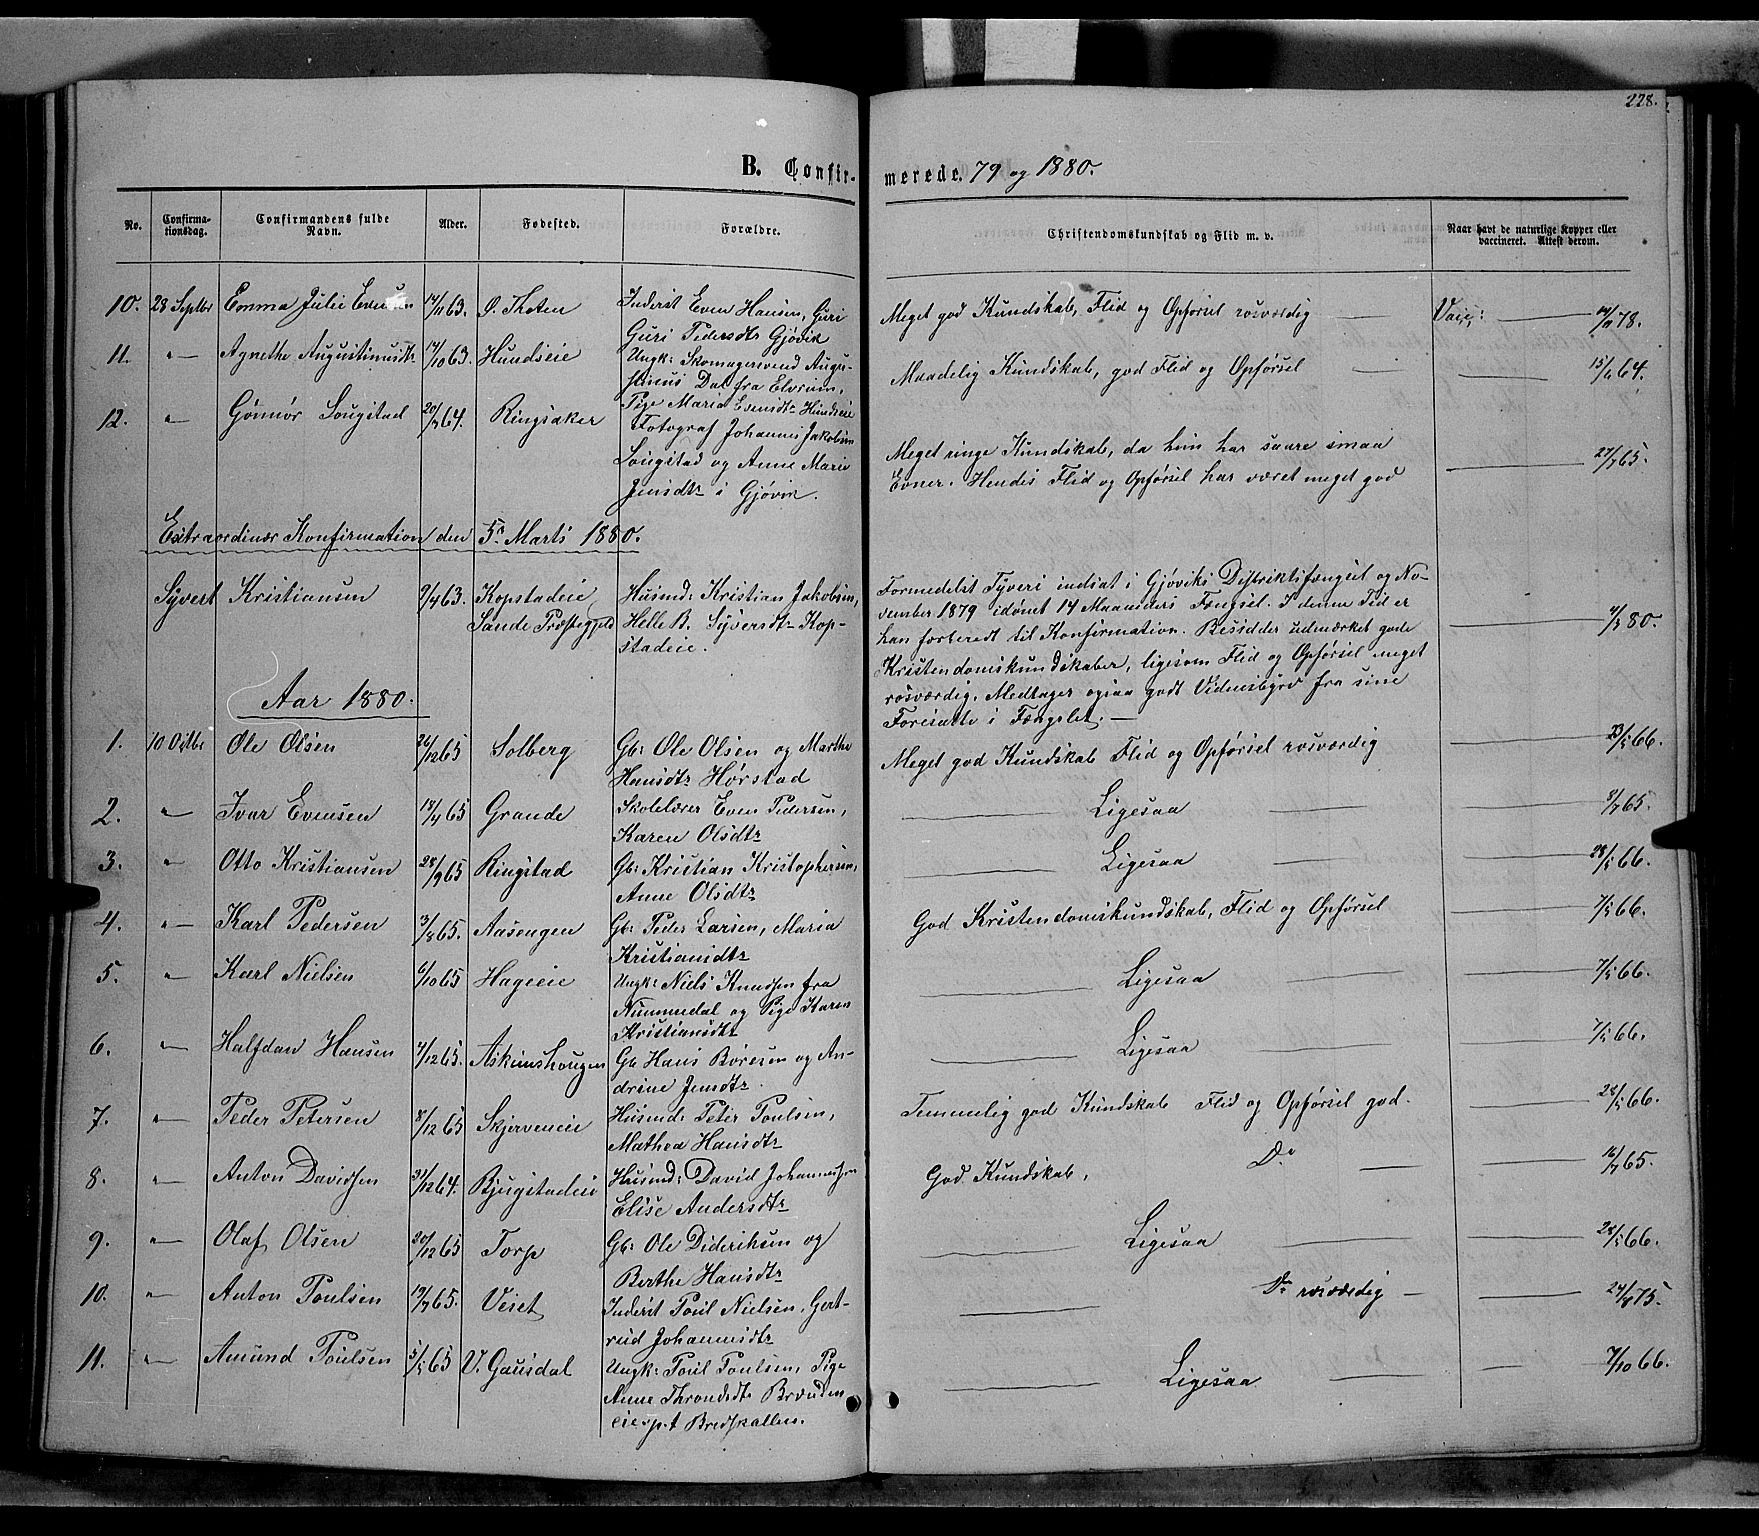 228.
B. Confirmerede. 79 og 1880.
No. Confirmationsdag. Confirmandens fulde Navn. Alder. Fødested. Forældre. Christendomskundskab og Flid m. v. Naar havt de naturlige Kopper eller vaccineret. Attest derom.
10. 28 Septbr Emma Julie Evensen 14/11 63. Ø. Thoten Inderst Even Hansen, Guri
Guri Pedersdtr Gjøvik
Meget god Kundskab, Flid og Opførsel rosværdig — Vacc:
11. " Agnethe Augustinusdtr 14/10 63. Hundseie Ungk: Skomagersvend Augu-
stinus Dal fra Elvrum,
Pige Maria Evensdtr Hundseie
Maadelig Kundskab, god Flid og Opførsel — 15/6 64.
12. " Gønnør Sougstad 20/ 64. Ringsaker
Fotograf Johannes Jakobsen
Sougstad og Anne Marie
Jensdtr i Gjøvik.
Meget ringe Kundskab, da hun har saare smaa
Evner. Hendes Flid og Opførsel har været meget god
27/7 65.
Extraordinær Konfirmation den 5. Marts 1880.
Syvert Kristiansen 2/4 63. Kopstadeie
Sande Præstegjeld
Husmd: Kristian Jakobsen,
Helle B. Syversdtr Kop-
stadeie.
Formedelst Tyveri indsat i Gjøviks Distriktsfængsel og No-
vember 1879 idømt 14 Maaneders Fængsel. I denne Tid er
han forberedt til Konfirmation. Besidder udmærket gode
Kristendomskundskaber, ligesom Flid og Opførsel meget
rosværdig. Medtager ogsaa godt Vidnesbyrd fra sine
Foresatte i Fængslet. —
80.
Aar 1880.
1. 10 Octbr Ole Olsen 26/12 65 Solberg Gb: Ole Olsen og Marthe
Hansdtr Hørstad
Meget god Kundskab Flid og Opførsel rosværdig 66.
2. " Ivar Evensen 19/4 65 Grande Skolelærer Even Pedersen,
Karen Olsdtr
Ligesaa 8/7 65.
3. " Otto Kristiansen 28/9 65 Ringstad Gb: Kristian Kristophersen,
Anne Olsdtr
Ligesaa 28/5 66.
4. " Karl Pedersen 3/8 65. Aasengen Gb: Peder Larsen, Maria
Kristiansdtr
God Kristendomskundskab, Flid og Opførsel 7/5 66.
5. " Karl Nielsen 6/10 65 Hageeie Ungk: Niels Knudsen fra
Nummedal og Pige Karen
Kristiansdtr
Ligesaa 7/5 66.
6. " Halfdan Hansen 7/12 65. Askimshougen Gb Hans Børesen og An-
drine Jensdtr.
Ligesaa 7/5 66.
7. " Peder Petersen 8/12 65 Skjerveneie Husmd: Peter Poulsen,
Mathea Hansdtr
Temmelig god Kundskab Flid og Opførsel god. 28/5 66.
8. " Anton Davidsen 31/12 64. Bjugstadeie Husmd: David Johannessen
Elise Andersdtr
God Kundskab, Do 16/7 65.
9. " Olaf Olsen 20/12 65 Torp Gb: Ole Dideriksen og
Berthe Hansdtr
Ligesaa 28/5 66.
10. " Anton Poulsen 19/7 65. Veset Inderst Poul Nielsen, Gert-
rud Johannesdtr
Do rosværdig — 24/8 75.
11. " Amund Poulsen 5/5 65 V. Gausdal Ungk: Poul Poulsen, Pige
Anne Throndsdtr Brænden
eie p.t Bredskallen.
Ligesaa 7/10 66.